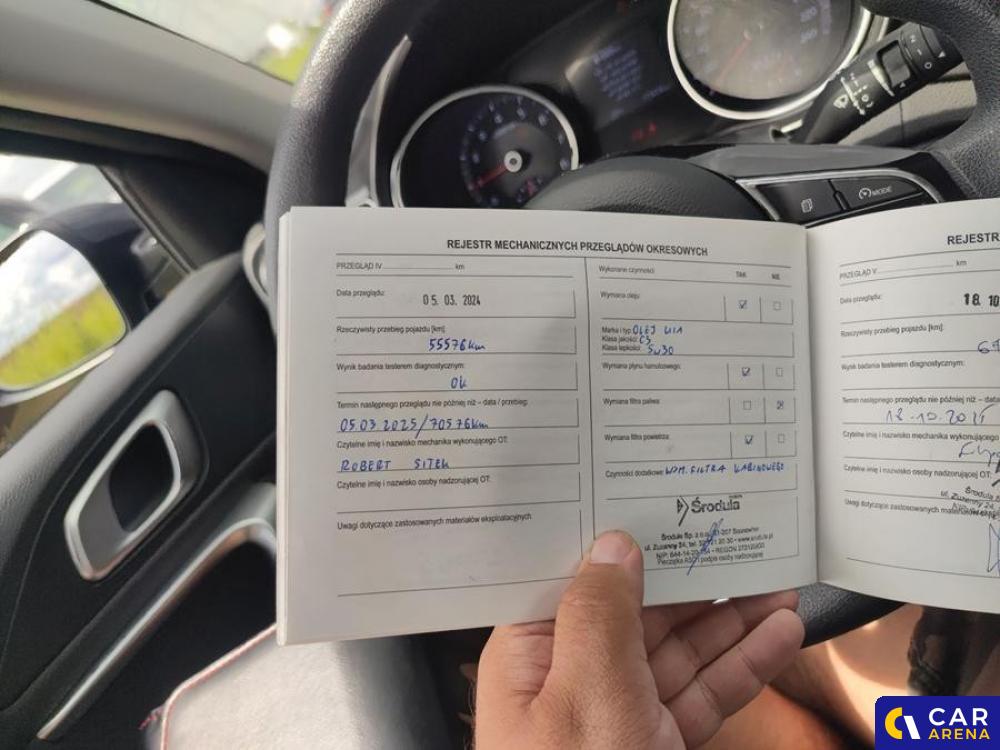 MODE
REJESTR MECHANICZNYCH PRZEGLĄDÓW OKRESOWYCH
PRZEGLĄD IV km
Data przeglądu: 05. 03. 2024
Rzeczywisty przebieg pojazdu [km]:
55576km
Wynik badania testerem diagnostycznym:
Ok
Termin następnego przeglądu nie później niż – data / przebieg:
05.03.2025/70576km
Czytelne imię i nazwisko mechanika wykonującego OT:
ROBERT SITEK
Czytelne imię i nazwisko osoby nadzorującej OT:
Uwagi dotyczące zastosowanych materiałów eksploatacyjnych
Wykonane czynności: TAK NIE
Wymiana oleju:
Marka i typ: OLEJ KIA
Klasa jakości: C3
Klasa lepkości: 5w30
Wymiana płynu hamulcowego:
Wymiana filtra paliwa:
Wymiana filtra powietrza:
Czynności dodatkowe: WYM. FILTRA KABINOWEGO
Środula
Środula Sp. z o.o. 41-207 Sosnowiec
ul. Zuzanny 24, tel. 32 20 30 • www.srodula.pl
Pieczątka ASO i podpis osoby nadzorującej
REJESTR
PRZEGLĄD V km
Data przeglądu: 18. 10
Rzeczywisty przebieg pojazdu [km]:
69
Wynik badania testerem diagnostycznym:
Termin następnego przeglądu nie później niż – data
18-10-20
Czytelne imię i nazwisko mechanika wykonującego
Czytelne imię i nazwisko osoby nadzorującej OT:
Środula
ul. Zuzanny 24
Uwagi dotyczące zastosowanych materiałów
CAR
ARENA